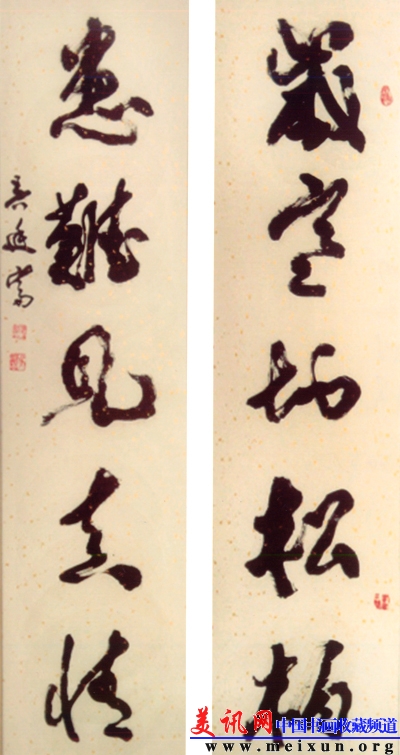 歲寒知松柏
患難見真情
美讯网 中国书画收藏频道
www.meixun.org